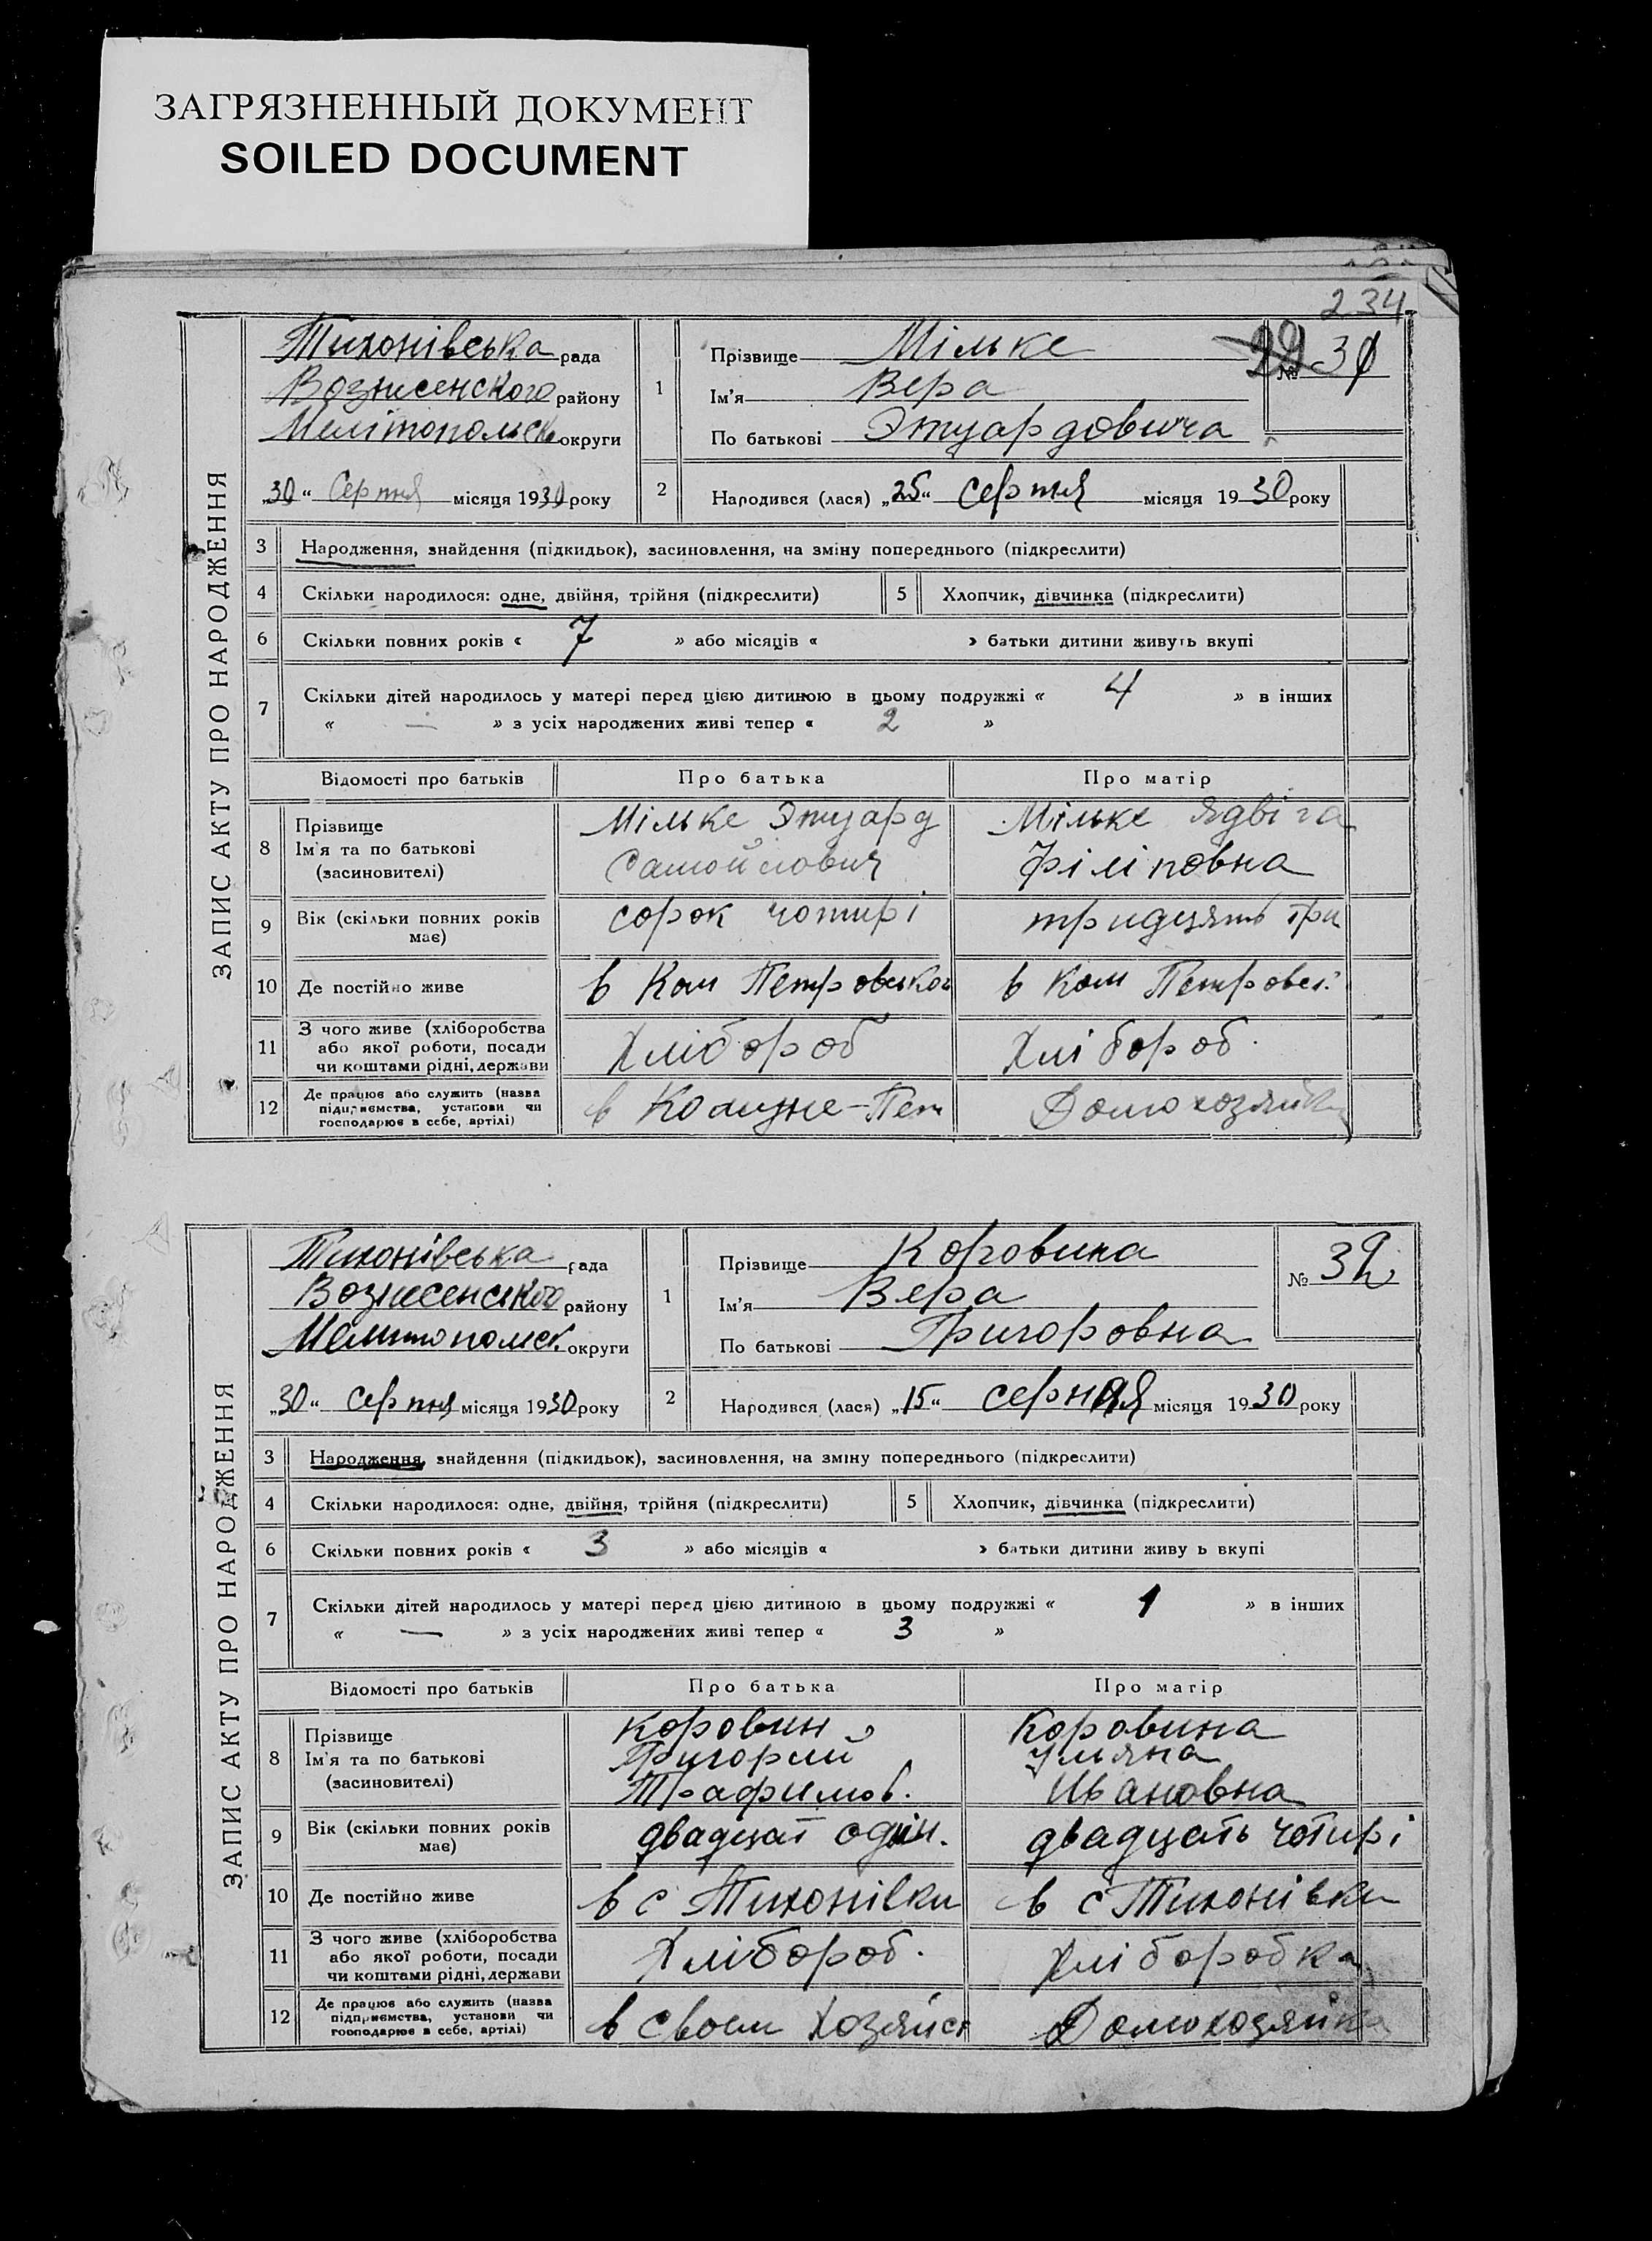 ЗАГРЯЗНЕННЫЙ ДОКУМЕНТ
SOILED DOCUMENT
234
ЗАПИС АКТУ ПРО НАРОДЖЕННЯ
Тихонівська рада
Вознесенского району
Мелітопольск округи
„30“ Серпня місяця 1930 року
1 Прізвище Мільке
Ім'я Вера
По батькові Этуардовича
29 № 31
2 Народився (лася) „25“ серпня місяця 1930 року
3 Народження, знайдення (підкидьок), засиновлення, на зміну попереднього (підкреслити)
4 Скільки народилося: одне, двійня, трійня (підкреслити) 5 Хлопчик, дівчинка (підкреслити)
6 Скільки повних років « 7 » або місяців « » батьки дитини живуть вкупі
7 Скільки дітей народилось у матері перед цією дитиною в цьому подружжі « 4 » в інших
« — » з усіх народжених живі тепер « 2 »
Відомості про батьків Про батька Про матір
8 Прізвище Ім'я та по батькові (засиновителі)
Мільке Этуард
Самойлович
Мільке Ядвіга
Філіповна
9 Вік (скільки повних років має) сорок чотирі тридцять три
10 Де постійно живе в Ком Петровськог в Ком Петровск
11 З чого живе (хліборобства
або якої роботи, посади
чи коштами рідні, держави
Хлібороб Хлібороб.
12 Де працює або служить (назва
підприємства, установи чи
господарює в себе, артілі)
в Комуне-Пет Домохозяйка
ЗАПИС АКТУ ПРО НАРОДЖЕННЯ
Тихонівська рада
Вознесенского району
Мелитопольск. округи
„30“ серпня місяця 1930 року
1 Прізвище Коровина
Ім'я Вера
По батькові Григоровна
№ 32
2 Народився (лася) „15“ серпня місяця 1930 року
3 Народження, знайдення (підкидьок), засиновлення, на зміну попереднього (підкреслити)
4 Скільки народилося: одне, двійня, трійня (підкреслити) 5 Хлопчик, дівчинка (підкреслити)
6 Скільки повних років « 3 » або місяців « » батьки дитини живу ь вкупі
7 Скільки дітей народилось у матері перед цією дитиною в цьому подружжі « 1 » в інших
« — » з усіх народжених живі тепер « 3 »
Відомості про батьків Про батька Про матір
8 Прізвище
Ім'я та по батькові
(засиновителі)
Коровин
Григорий
Трафимов.
Коровина
Ульяна
Ивановна
9 Вік (скільки повних років має) двадцат одін. двадцать чотирі
10 Де постійно живе в с Тихонівки в с Тихонівки
11 З чого живе (хліборобства
або якої роботи, посади
чи коштами рідні, держави
Хлібороб. Хліборобка
12 Де працює або служить (назва
підприємства, установи чи
господарює в себе, артілі)
в своем Хозяйст Домохозяйка